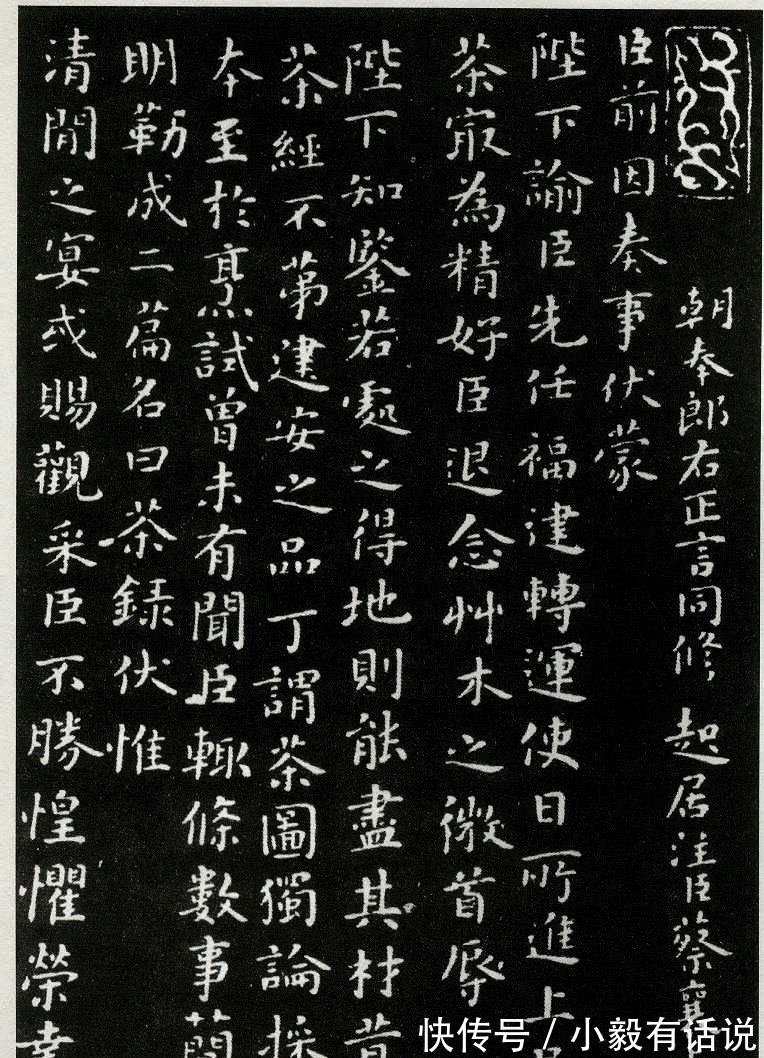 朝奉郎右正言同修起居注臣蔡襄
臣前因奏事伏蒙
陛下諭臣先任福建轉運使日所進上
茶㝡為精好臣退念艸木之微首辱
陛下知鑒若處之得地則能盡其材昔
茶經不苐建安之品丁謂茶圖獨論採
本至於烹試曾未有聞臣輙條數事簡
明勒成二篇名曰茶錄伏惟
清閒之宴或賜觀采臣不勝惶懼榮幸
快传号 / 小毅有话说